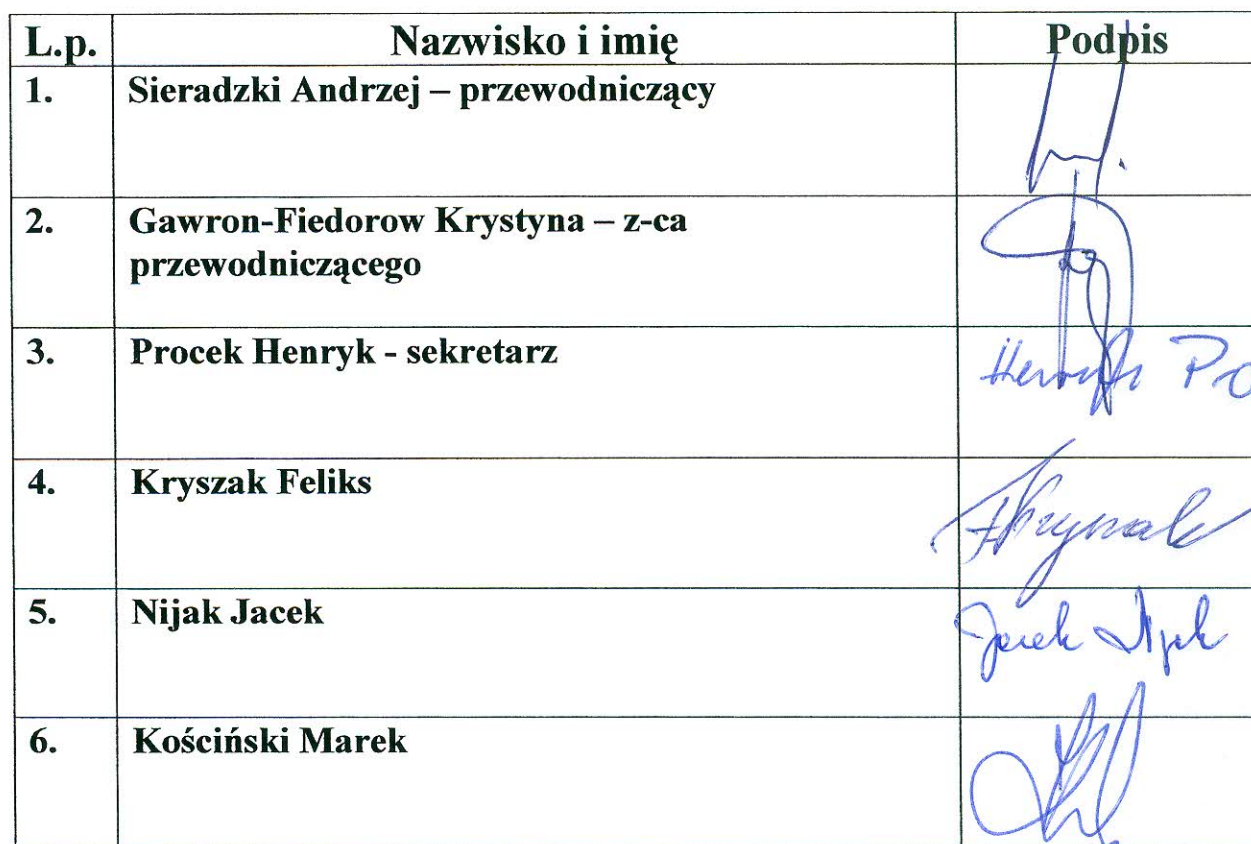 L.p. Nazwisko i imię Podpis
1. Sieradzki Andrzej – przewodniczący
2. Gawron-Fiedorow Krystyna – z-ca
przewodniczącego
3. Procek Henryk - sekretarz
Henryk
4. Kryszak Feliks
FKryszak
5. Nijak Jacek
Jacek Nijak
6. Kościński Marek